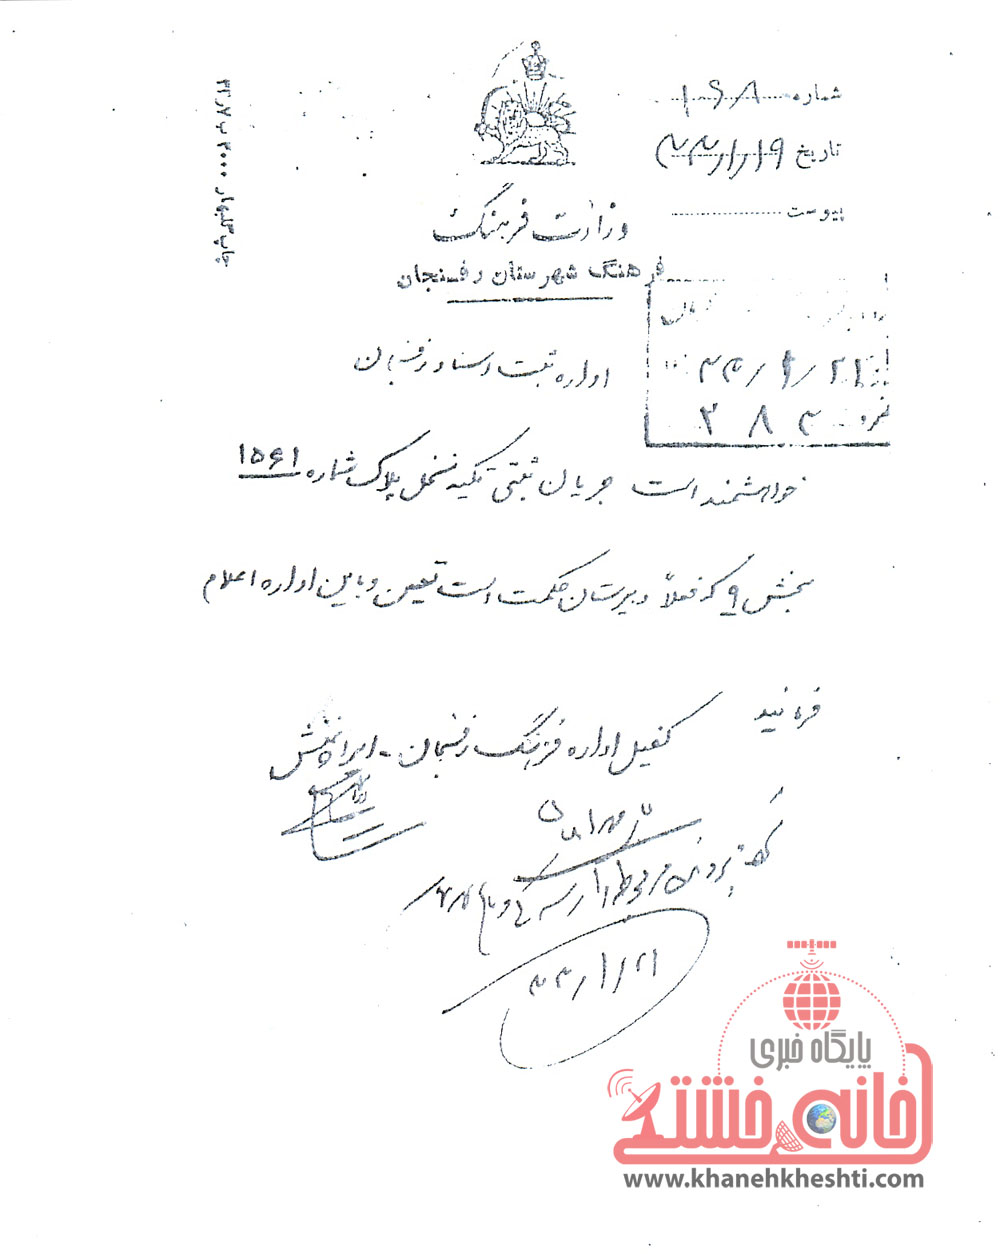 شماره ۱۶۸
تاریخ ۳۳/۱/۱۹
پیوست
وزارت فرهنگ
فرهنگ شهرستان رفسنجان
۳۳/۱/۲۱
نمره ۳۸۳
اداره ثبت اسناد رفسنجان
خواهشمند است جریان ثبتی تکیه نخل پلاک شماره ۱۵۶۱
بخش ۹ که فعلاً دبیرستان حکمت است تعیین و باین اداره اعلام
فرمائید
کفیل اداره فرهنگ رفسنجان -
پرونده مربوطه را
۳۳/۱/۲۱
چاپ گلبهار
پایگاه خبری
خانه خشتی
www.khanehkheshti.com